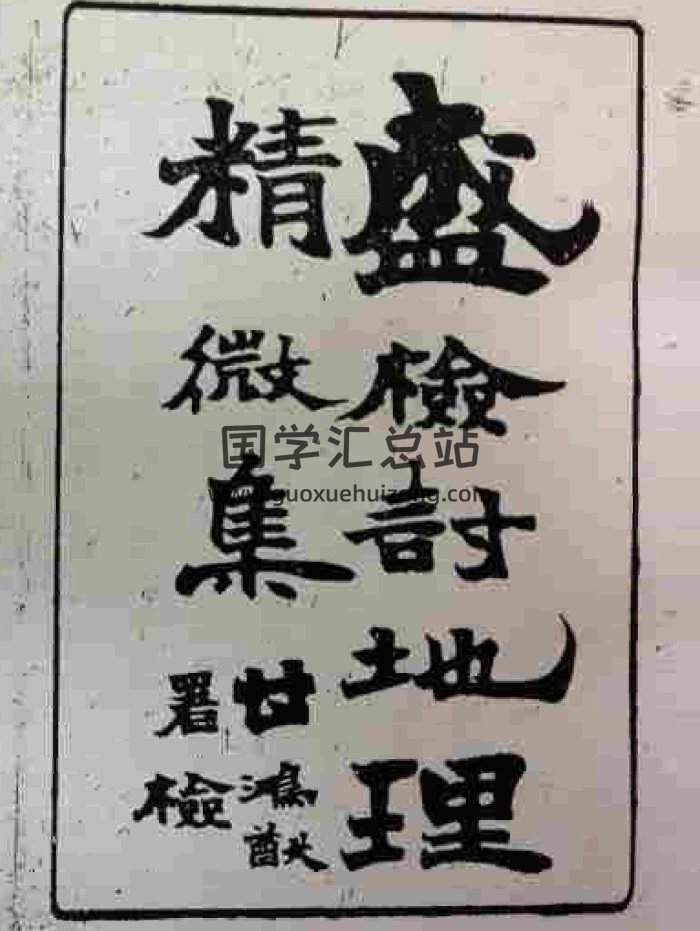 盛檢討地理
精微集
甘鴻猷
署檢
国学汇总站
www.guoxuehuizong.com